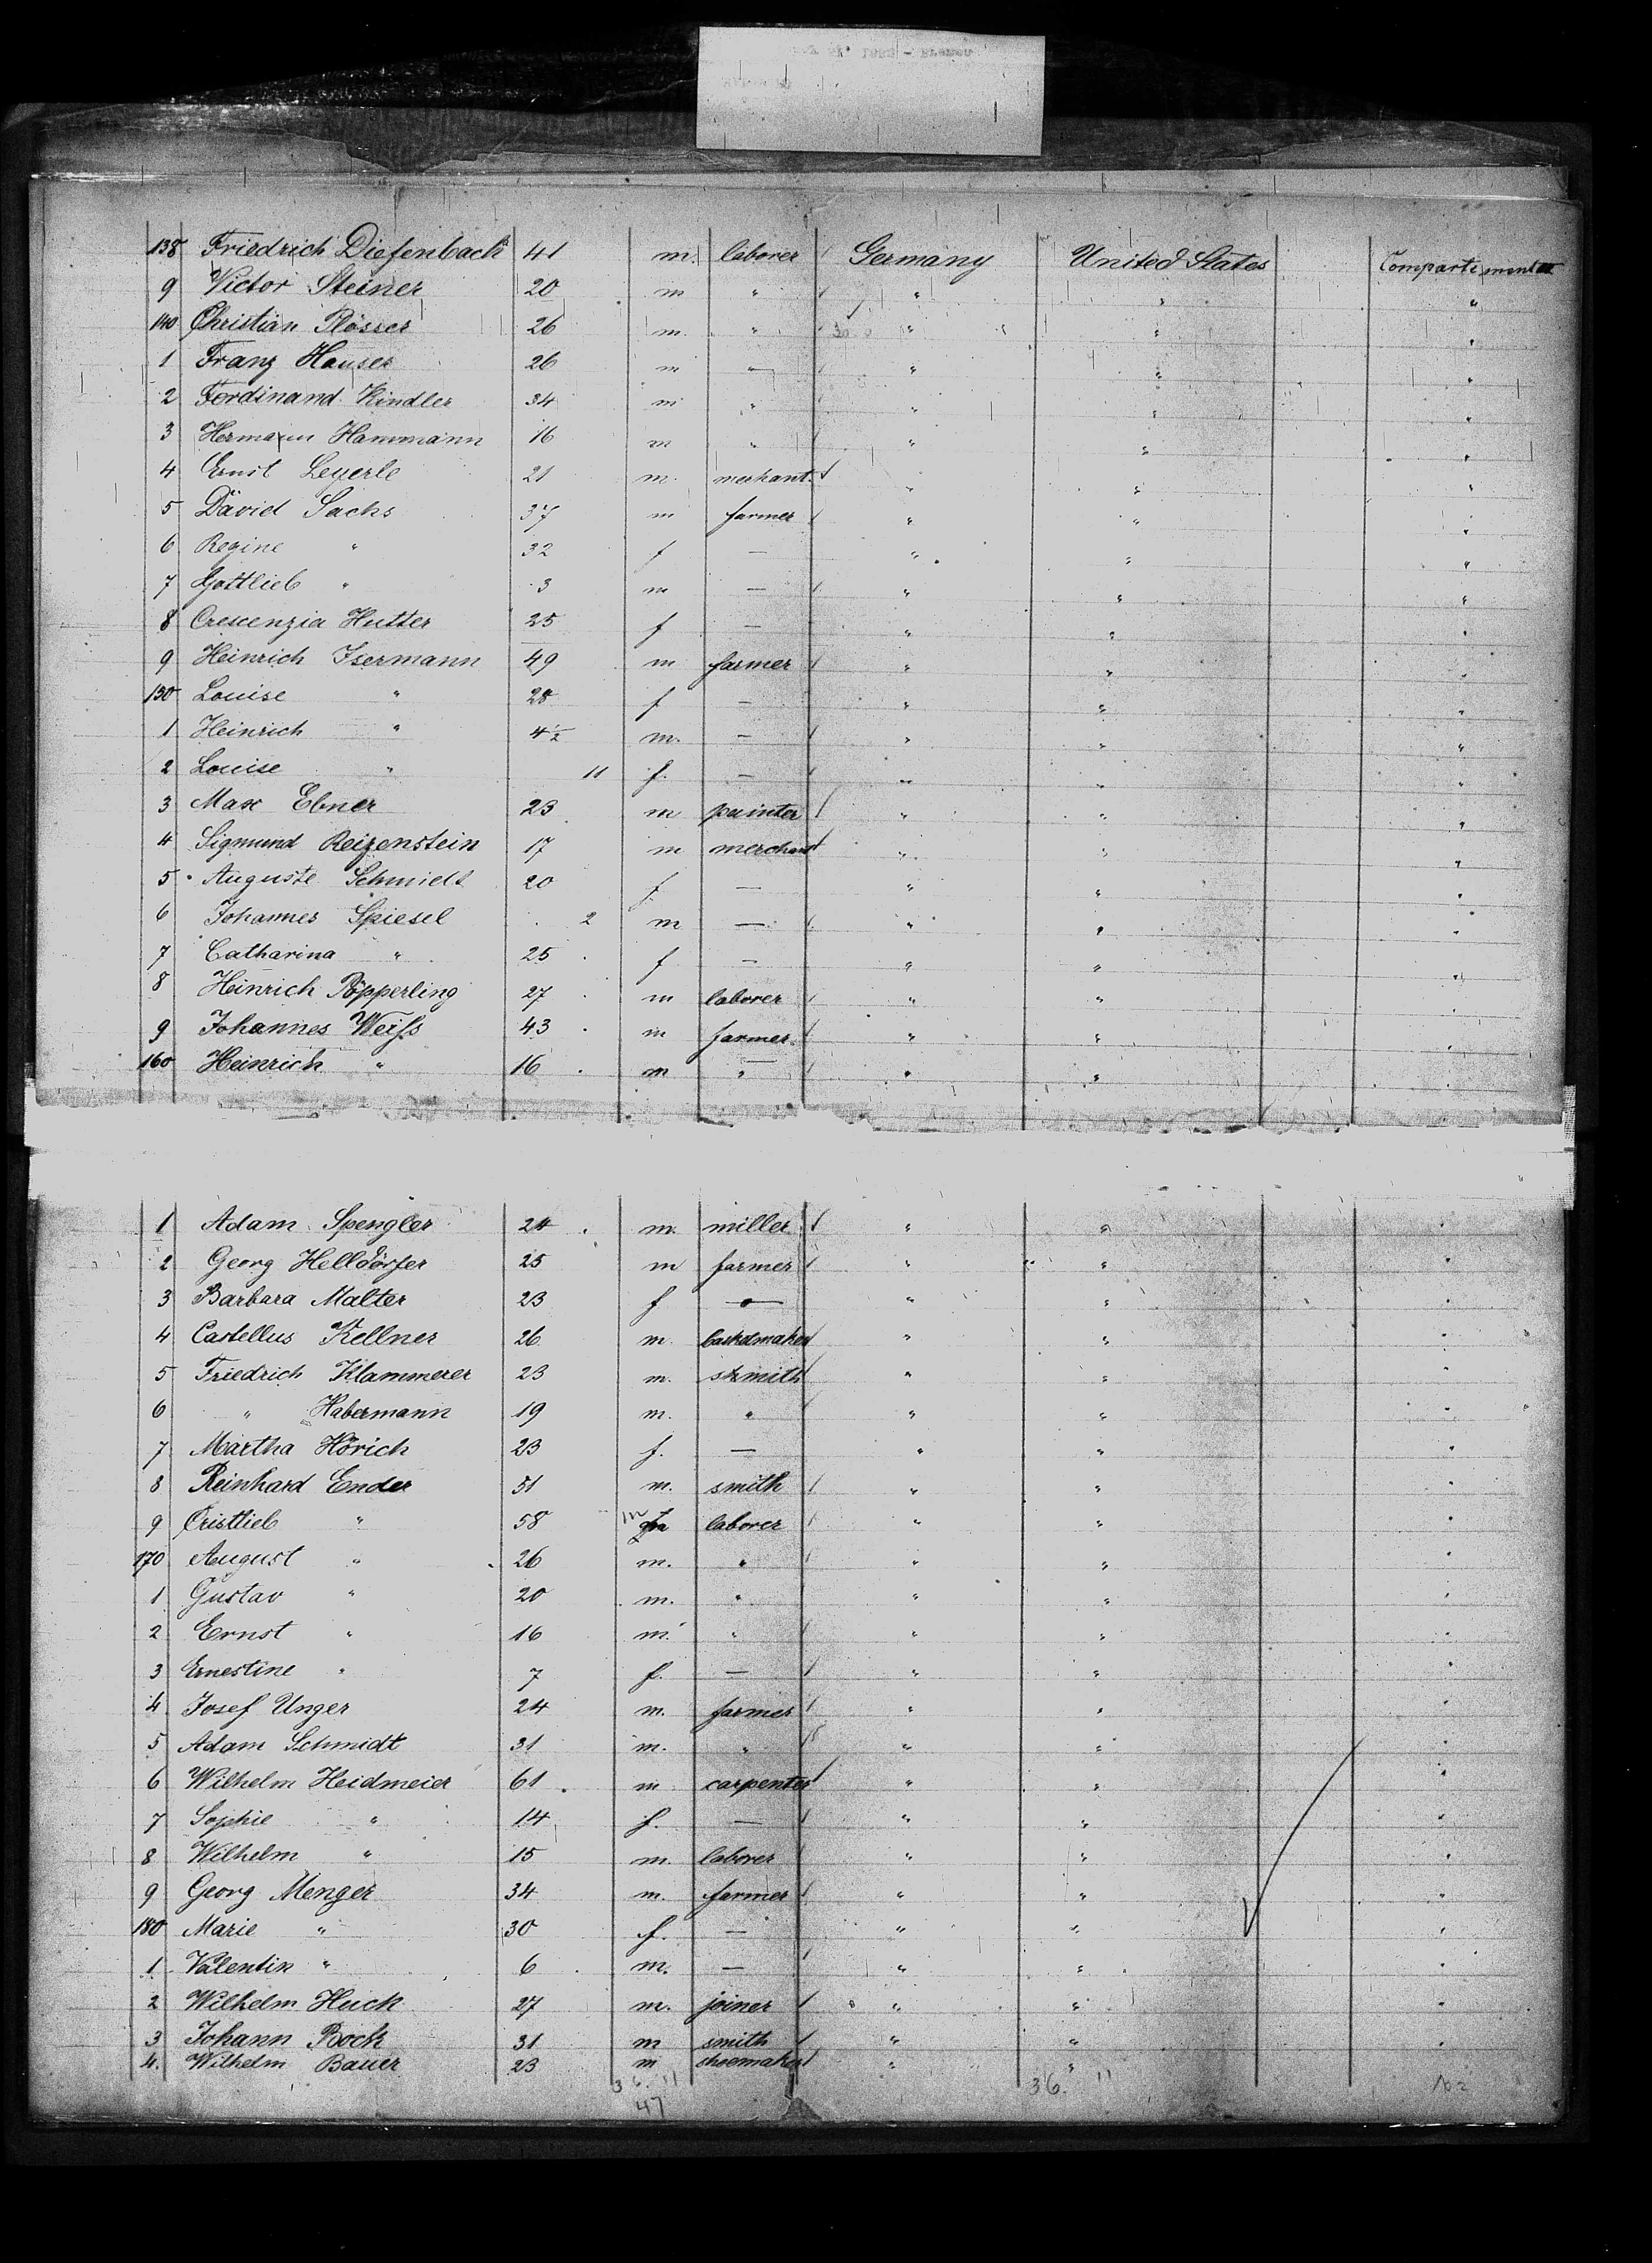 138 Friedrich Diefenbach 41 m. laborer Germany United States Compartiment
9 Victor Steiner 20 m " " " "
140 Christian Plösser 26 m. " " " "
1 Franz Hauser 26 m " " " "
2 Ferdinand Kindler 34 m " " " "
3 Hermann Hammann 16 m " " " "
4 Ernst Leyerle 21 m. merhant. " " "
5 David Sachs 37 m farmer " " "
6 Regine " 32 f — " " "
7 Gottlieb " 3 m — " " "
8 Crescenzia Hutter 25 f — " " "
9 Heinrich Isermann 49 m farmer " " "
150 Louise " 28 f — " " "
1 Heinrich " 4½ m. — " " "
2 Louise " 11 f. — " " "
3 Max Ebner 23 m painter " " "
4 Sigmund Reizenstein 17 m merchant " " "
5 Auguste Schmidt 20 f — " " "
6 Johannes Spiesel 2 m — " " "
7 Catharina " 25 f — " " "
8 Heinrich Pöpperling 27 m laborer " " "
9 Johannes Weiss 43 m farmer. " " "
160 Heinrich " 16 m " " " "
1 Adam Spengler 24 m. miller " " "
2 Georg Helldörfer 25 m farmer " " "
3 Barbara Malter 23 f — " " "
4 Castellus Kellner 26 m. basketmaker " " "
5 Friedrich Klammerer 23 m. smith " " "
6 " Habermann 19 m. " " " "
7 Martha Hörich 23 f. — " " "
8 Reinhard Ender 51 m. smith " " "
9 Cristlieb " 58 m laborer " " "
170 August " 26 m. " " " "
1 Gustav " 20 m. " " " "
2 Ernst " 16 m. " " " "
3 Ernestine " 7 f. — " " "
4 Josef Unger 24 m. farmer " " "
5 Adam Schmidt 31 m. " " " "
6 Wilhelm Heidmeier 61 m carpenter " " "
7 Sophie " 14 f. — " " "
8 Wilhelm " 15 m. laborer " " "
9 Georg Menger 34 m. farmer " " "
180 Marie " 30 f. — " " "
1 Valentin " 6 m. — " " "
2 Wilhelm Huck 27 m. joiner " " "
3 Johann Bock 31 m smith " " "
4. Wilhelm Bauer 23 m shoemaker " " "
36. 11 36. 11
47